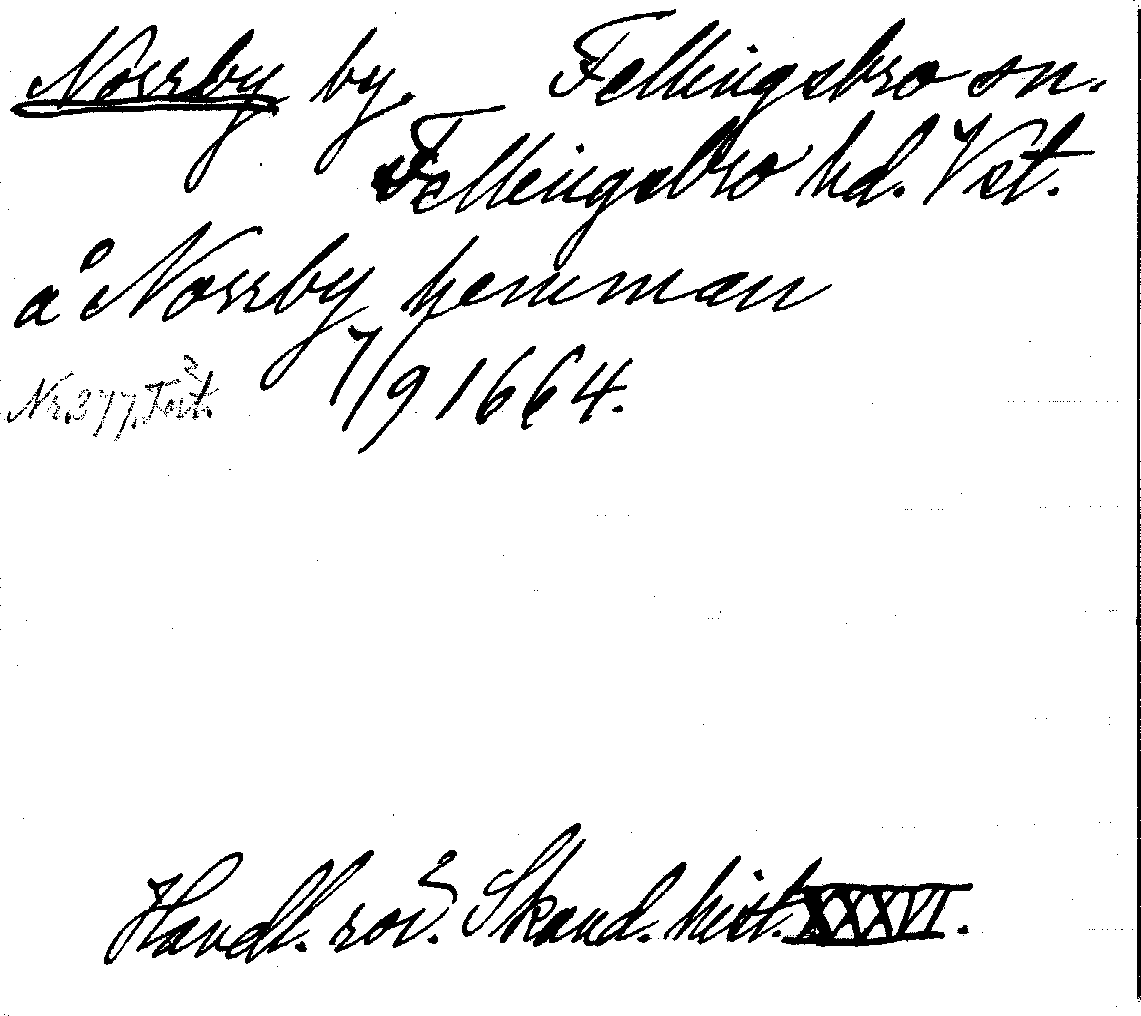 Norrby by. Fellingsbro sn.
Fellingsbro hd. Vst.
å Norrby hemman
7/9 1664.
Nr. 377.
Handl. rör. Skand. hist. XXXVI.